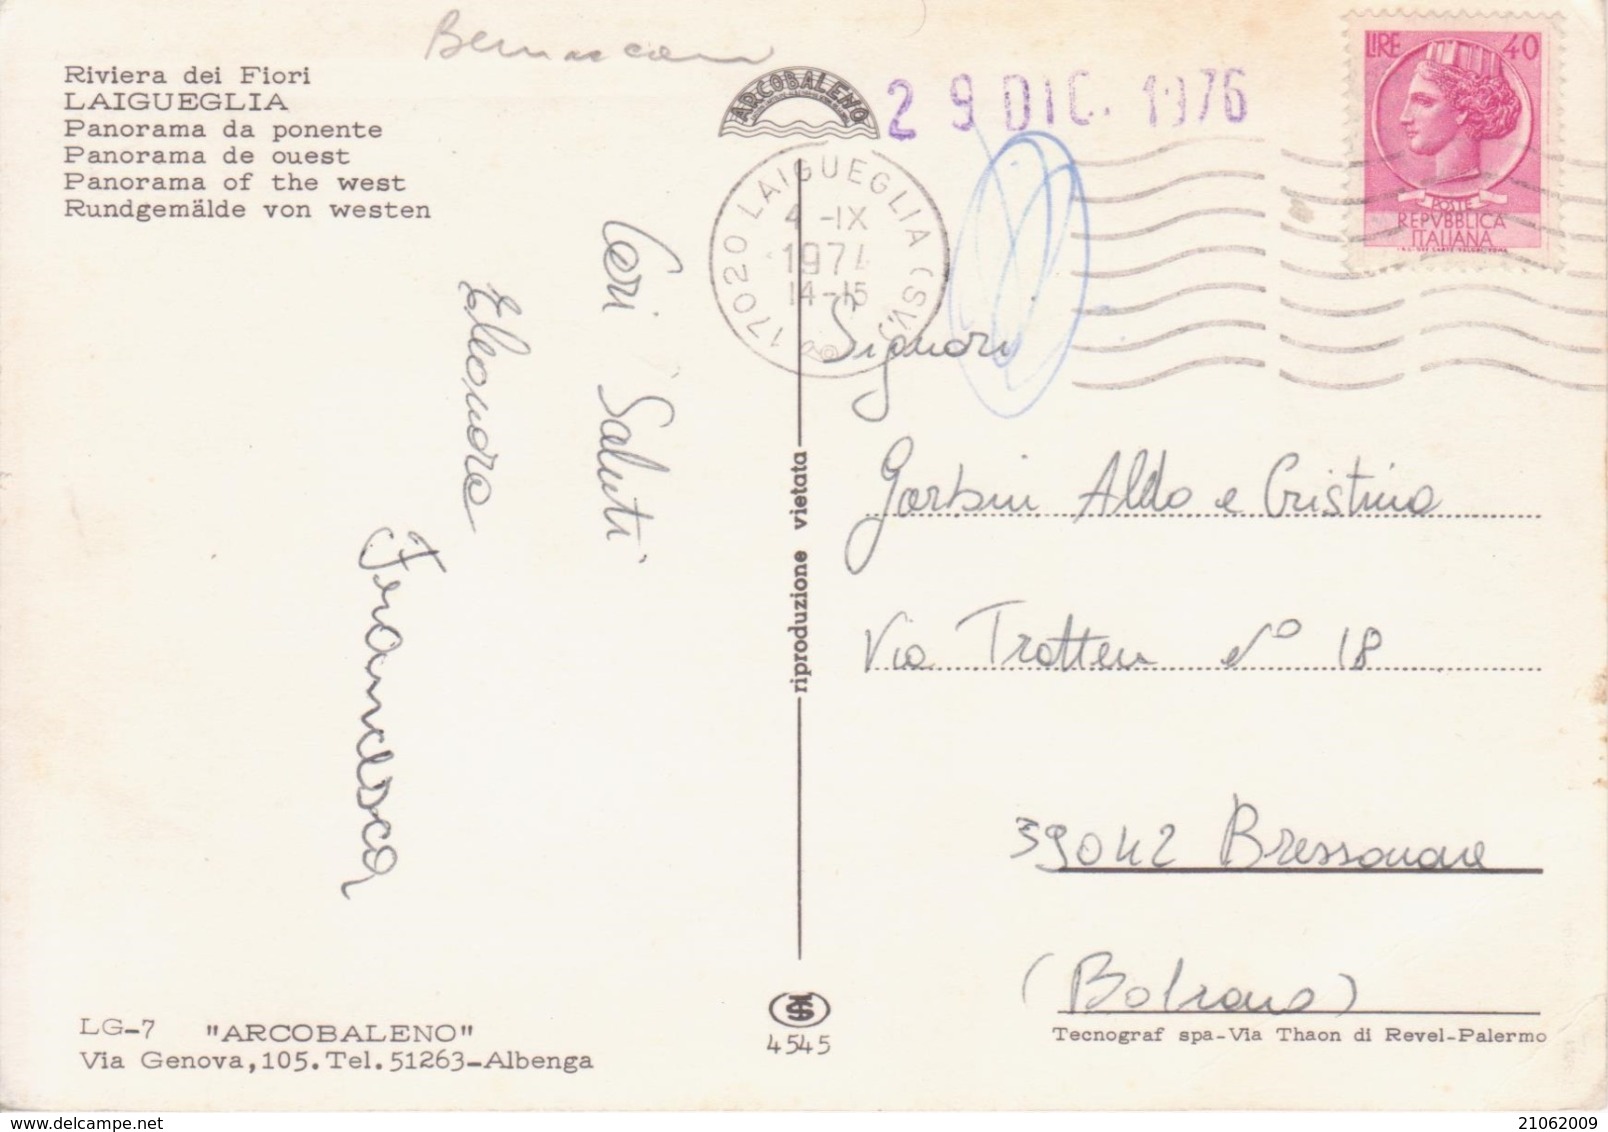 Bernascon
Riviera dei Fiori
LAIGUEGLIA
Panorama da ponente
Panorama de ouest
Panorama of the west
Rundgemälde von westen
ARCOBALENO
29 DIC. 1976
LIRE 40
POSTE
REPVBBLICA
ITALIANA
17020 LAIGUEGLIA (SV)
4-IX
1974
14-15
Cari Saluti
Eleonora
Francesca
riproduzione vietata
Signori
Garbini Aldo e Cristina
Via Tratten N° 18
39042 Bressanone
(Bolzano)
LG-7 "ARCOBALENO"
Via Genova,105.Tel.51263-Albenga
4545
Tecnograf spa-Via Thaon di Revel-Palermo
www.delcampe.net
21062009